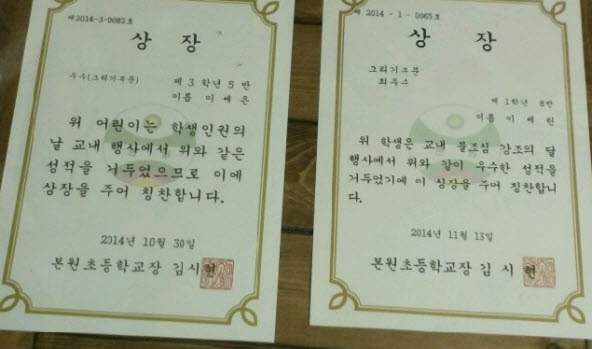 제2014-3-0083호
상 장
우수(그리기부문)
제 3 학년 5 반
이름 이 세 은
위 어린이는 학생인권의
날 교내 행사에서 위와 같은
성적을 거두었으므로 이에
상장을 주어 칭찬합니다.
2014년 10월 30일
본원초등학교장 김시현
제 2014 - 1 - 0065호
상 장
그리기부문
최우수
제 1학년 8반
이름 이 세 린
위 학생은 교내 불조심 강조의 달
행사에서 위와 같이 우수한 성적을
거두었기에 이 상장을 주어 칭찬합니
다.
2014년 11월 13일
본원초등학교장 김 시 현